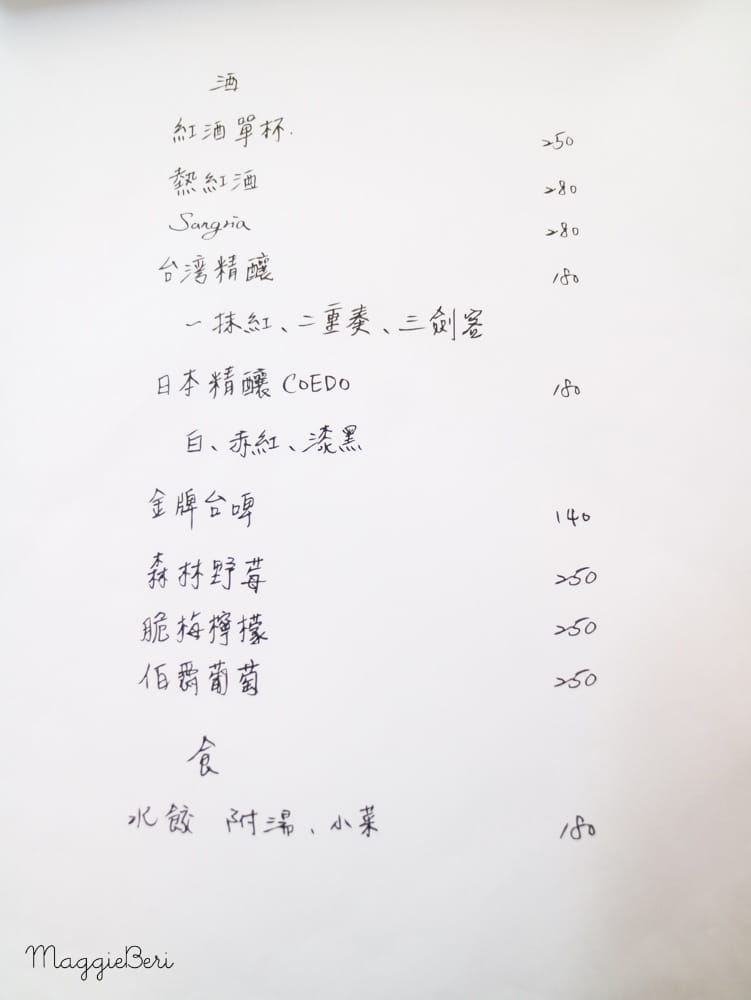 酒
紅酒單杯. 250
熱紅酒 280
Sangria 280
台湾精釀 180
一抹紅、二重奏、三劍客
日本精釀 COEDO 180
白、赤紅、漆黑
金牌台啤 140
森林野莓 250
脆梅檸檬 250
伯爵葡萄 250
食
水餃 附湯、小菜 180
MaggieBeri